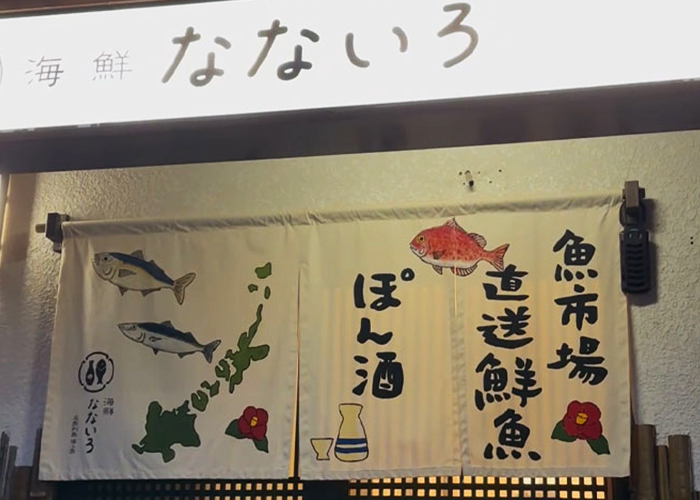 海鮮 なないろ
魚市場
直送鮮魚
ぽん酒
海鮮
なないろ